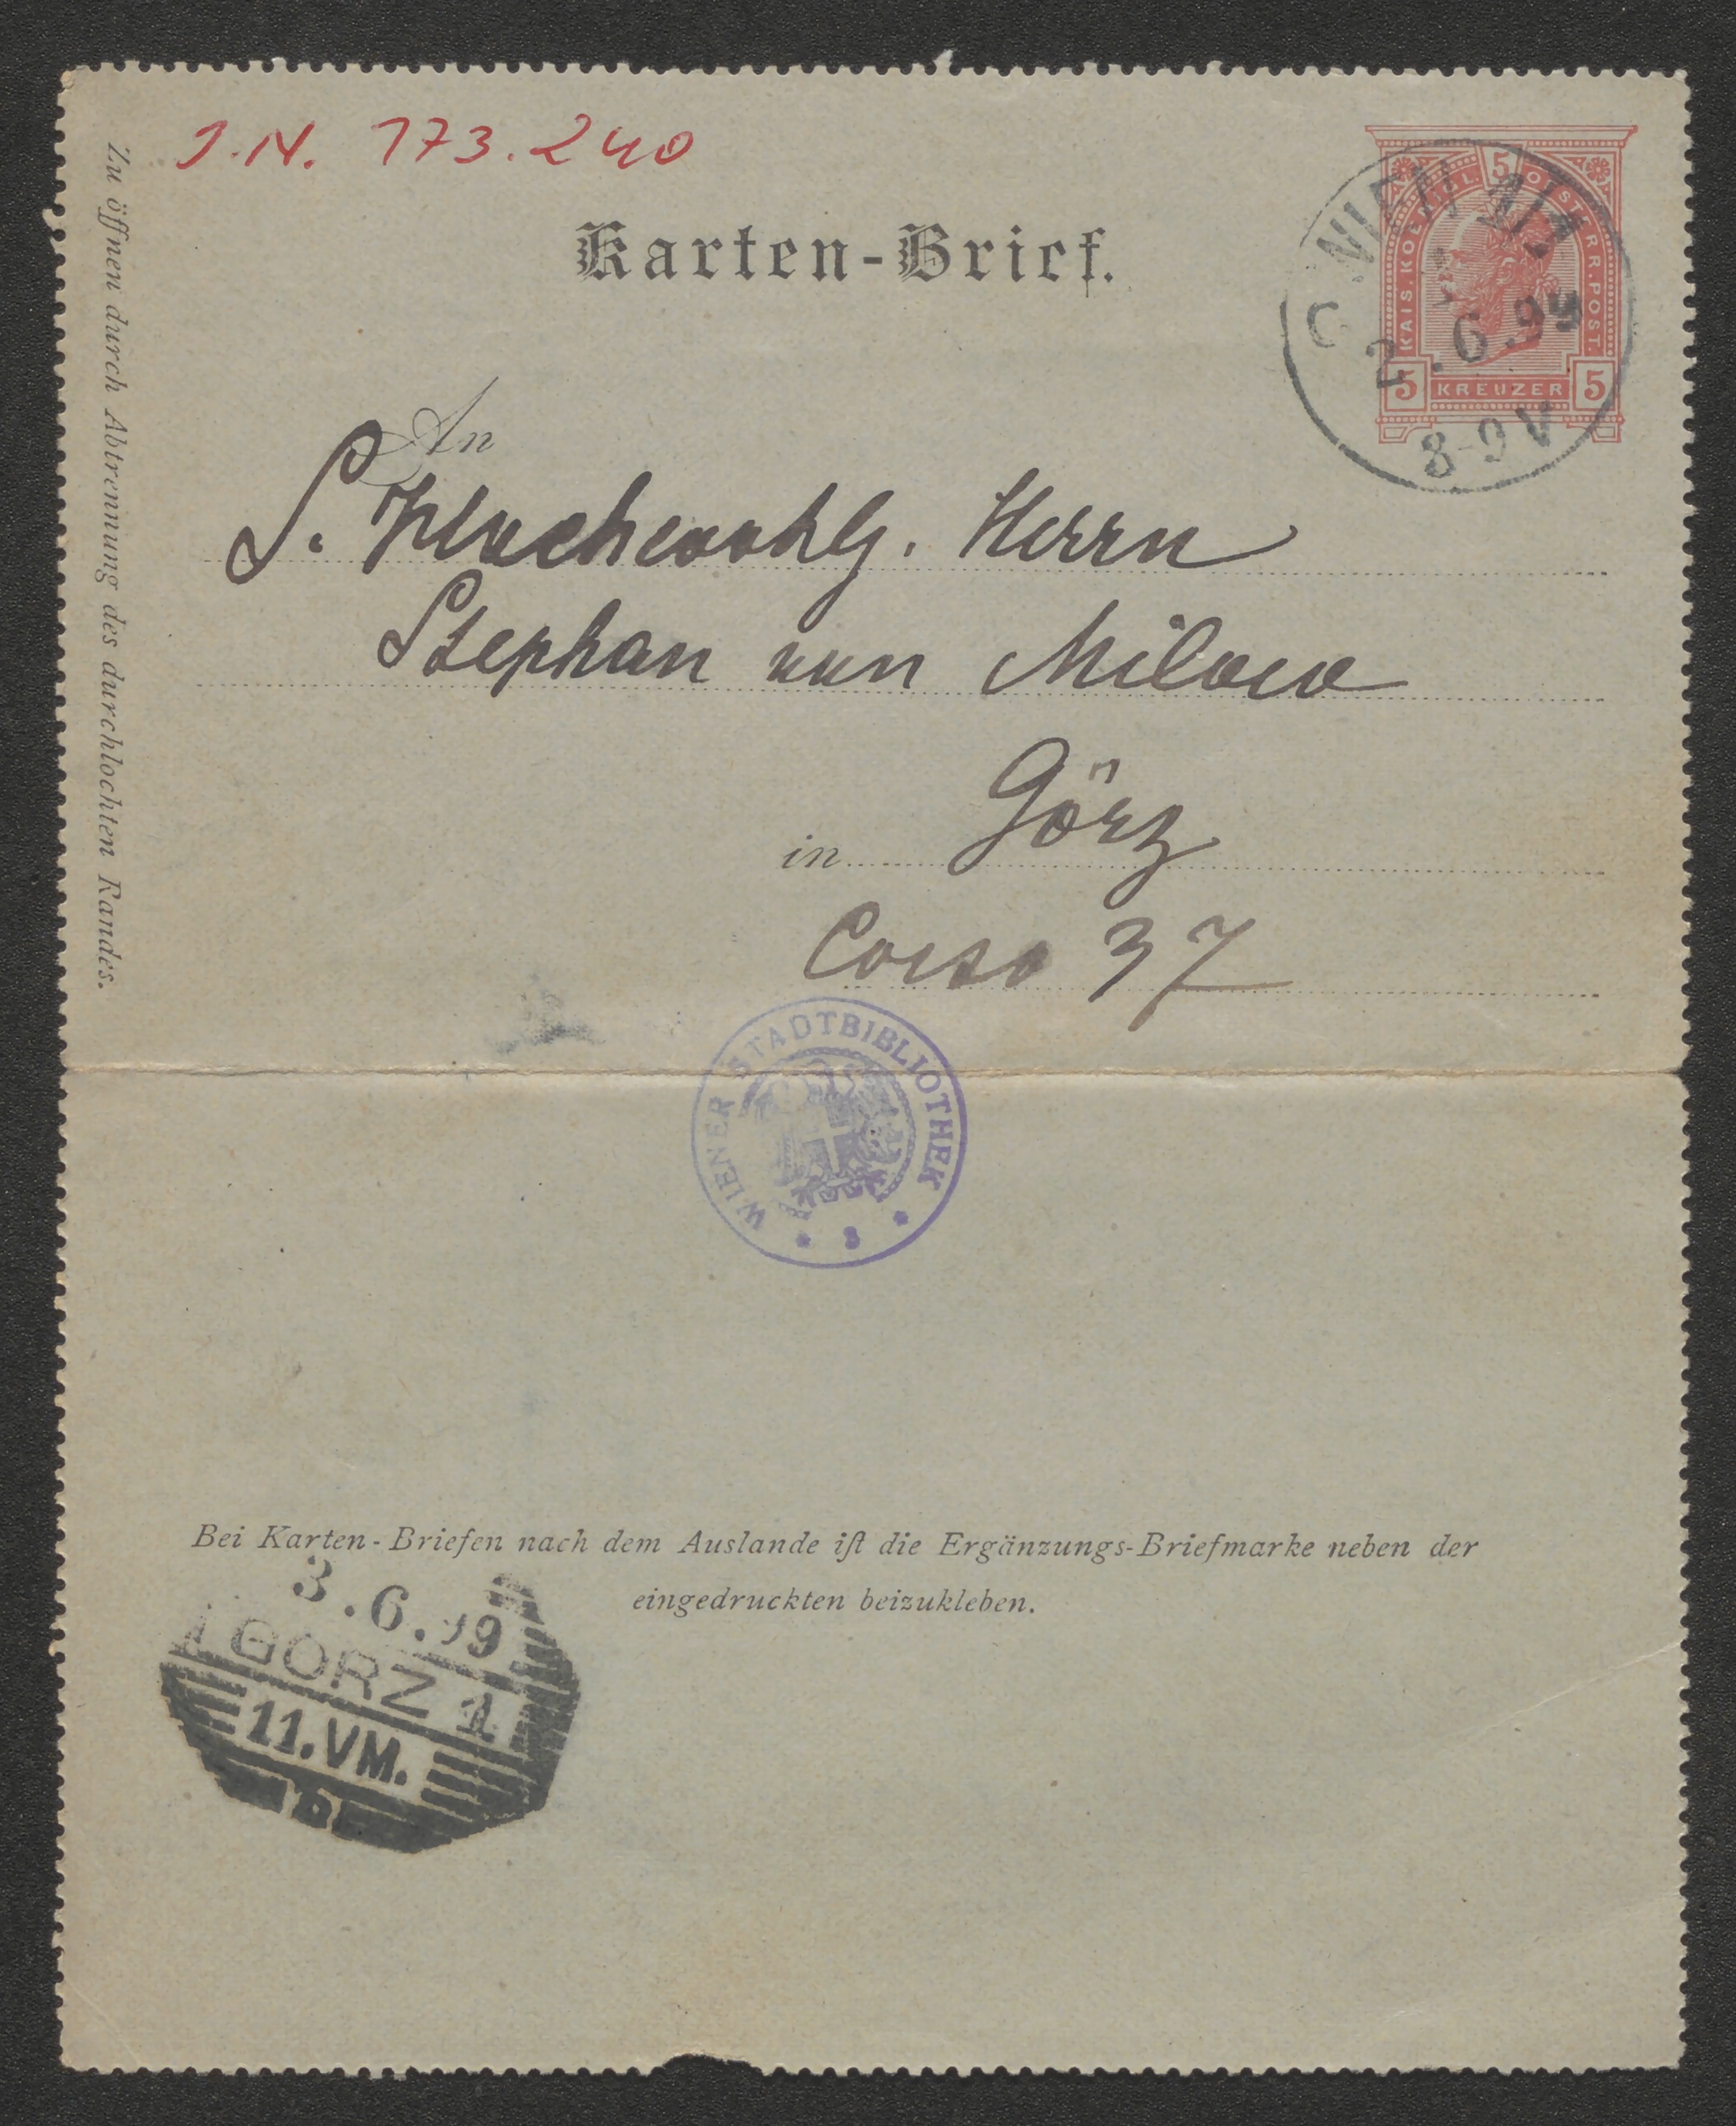 J.N. 173.240
Zu öffnen durch Abtrennung des durchlochten Randes.
Karten-Brief.
KAIS. KOENIGL. 5 OESTERR. POST.
5 KREUZER 5
WIEN
2. 6. 99
8-9 V
An
S. Hochwohlg. Herrn
Stephan von Milow
in Görz
Corso 37
WIENER STADTBIBLIOTHEK
Bei Karten-Briefen nach dem Auslande iſt die Ergänzungs-Briefmarke neben der
eingedruckten beizukleben.
3.6.99
GÖRZ 1
11.VM.
b